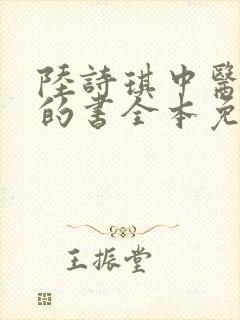 陸詩琪中醫
的書全本免
王振堂